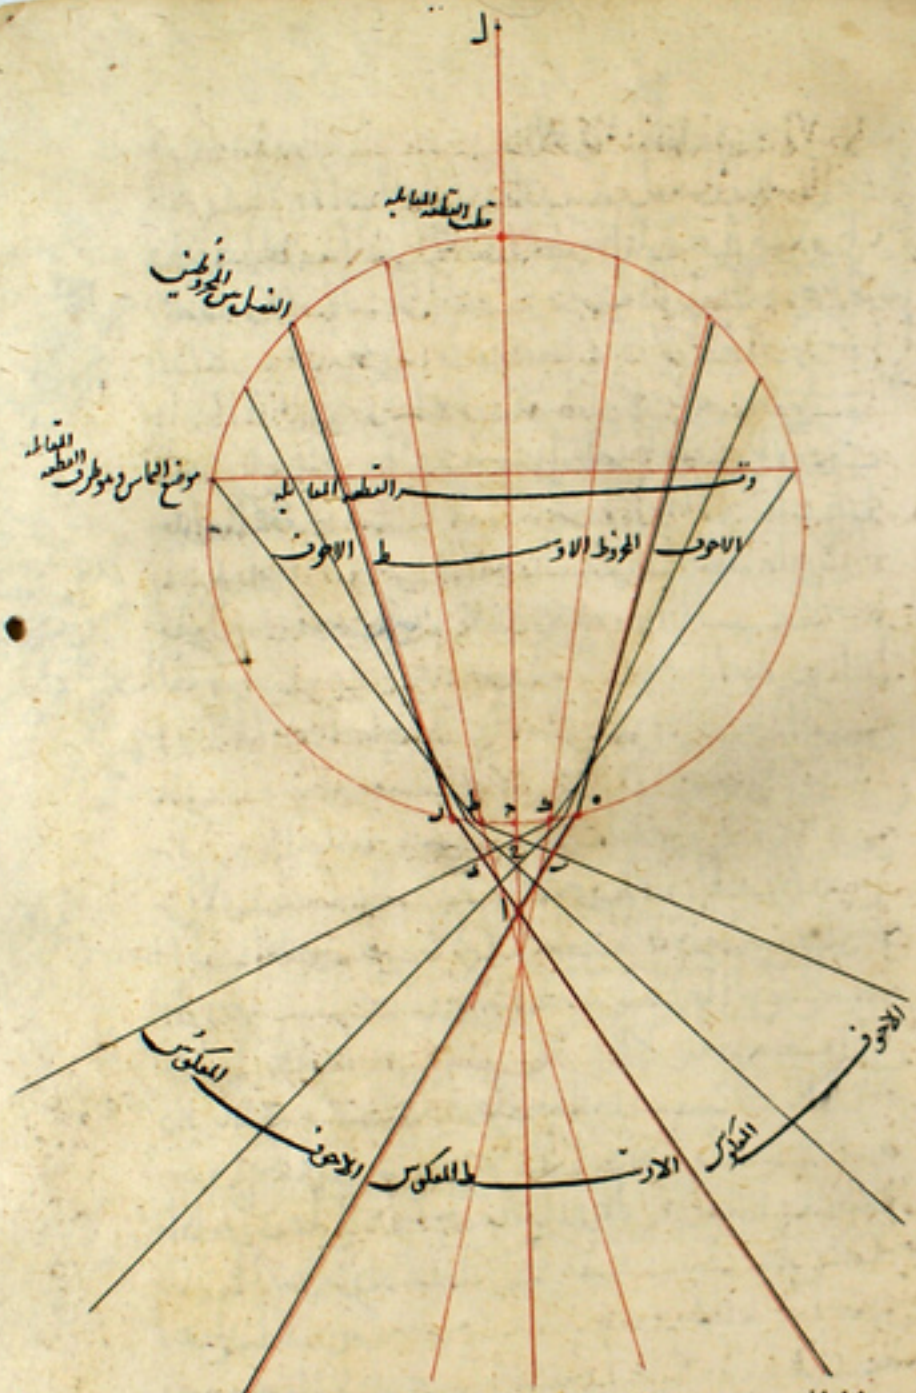 ل
قطب القطعه المقابله
الفصل بين المخروطين
موضع التماس وهو طرف القطعه المقابله
وتــر القطعه المقابله
الاجوف المخروط الاوسط الاجوف
ه
ط
ح
الاجوف المعكوس
الاوسط المعكوس
الاجوف المعكوس